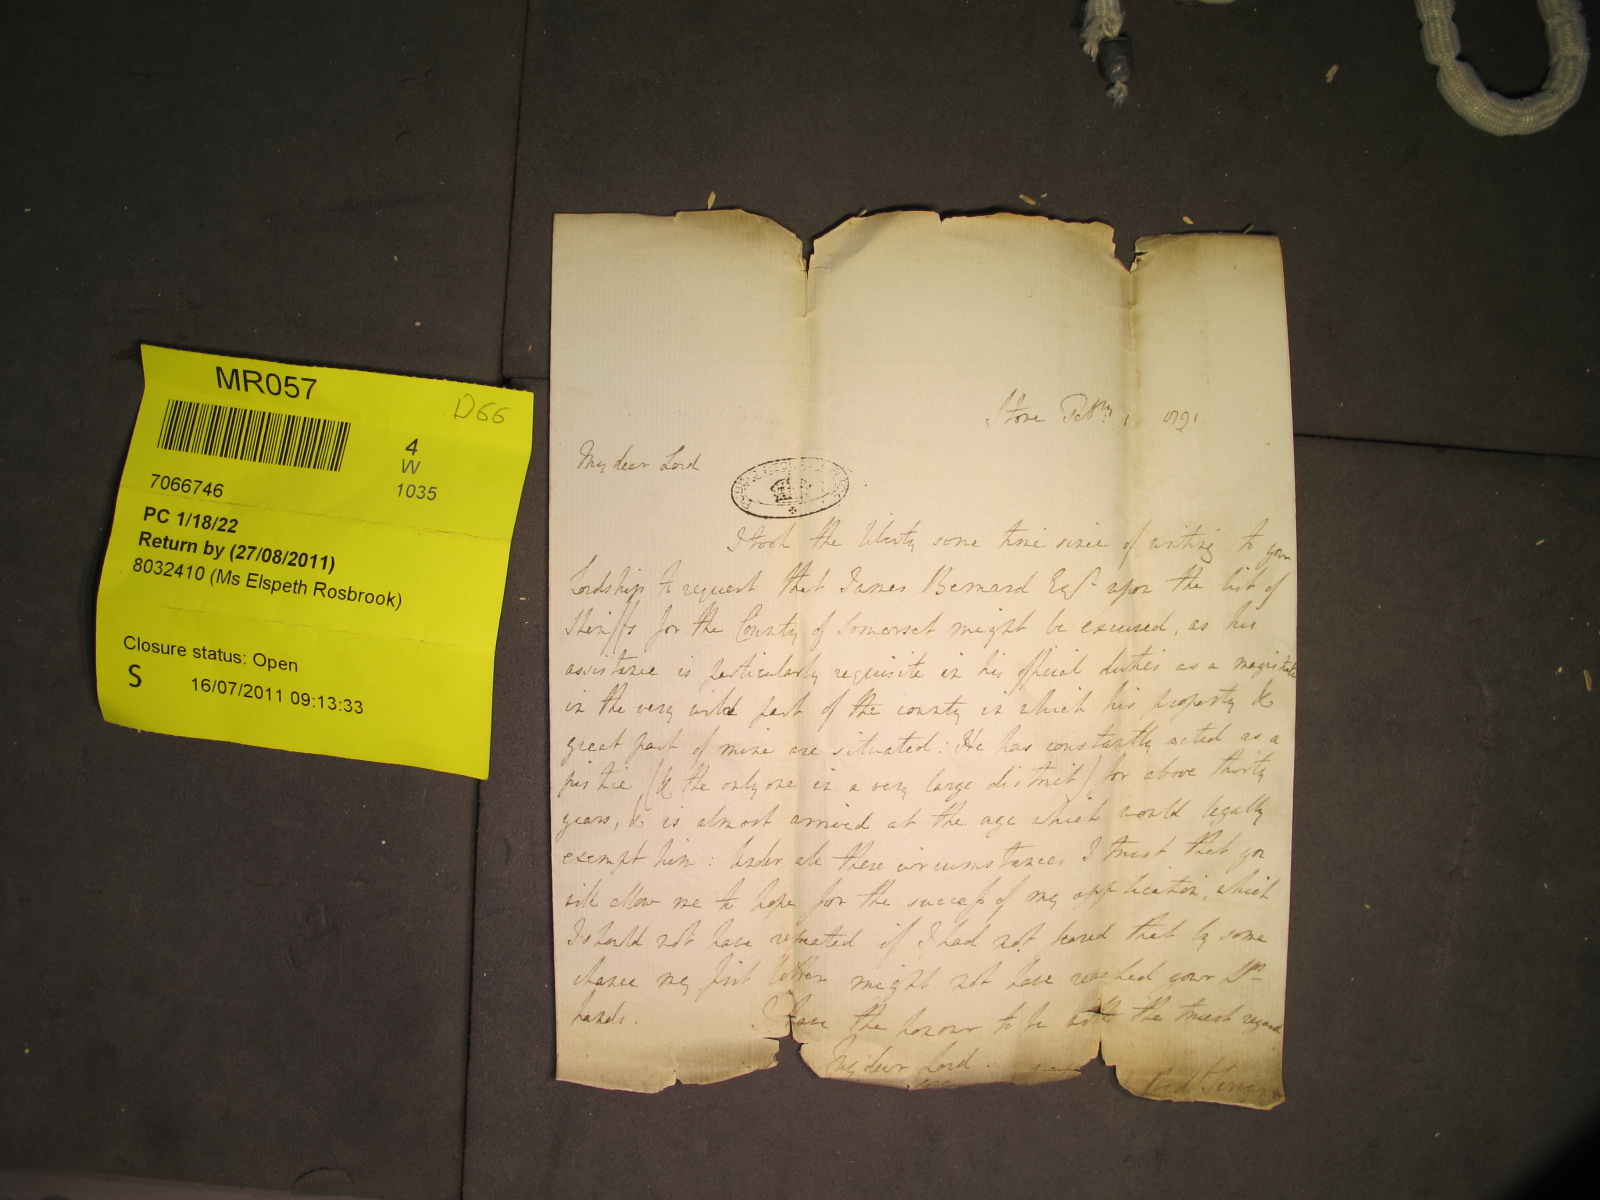 MR057
D66
4
W
1035
7066746
PC 1/18/22
Return by (27/08/2011)
8032410 (Ms Elspeth Rosbrook)
Closure status: Open
S
16/07/2011 09:13:33
Stowe Feb^ry. 1 1791
My dear Lord
I took the liberty some time since of writing to your
Lordship to request that James Bernard Esq^r upon the list of
Sheriffs for the County of Somerset might be excused, as his
assistance is particularly requisite in his official duties as a magistrate
in the very wild part of the county in which his property &
great part of mine are situated: He has constantly acted as a
justice (& the only one in a very large district) for above thirty
years, & is almost arrived at the age which would legally
exempt him: Under all these circumstances I trust that you
will allow me to hope for the success of my application, which
I should not have repeated if I had not feared that by some
chance my first letter might not have reached your L^ps
hands. I have the honour to be with the truest regard
My dear Lord
Servant